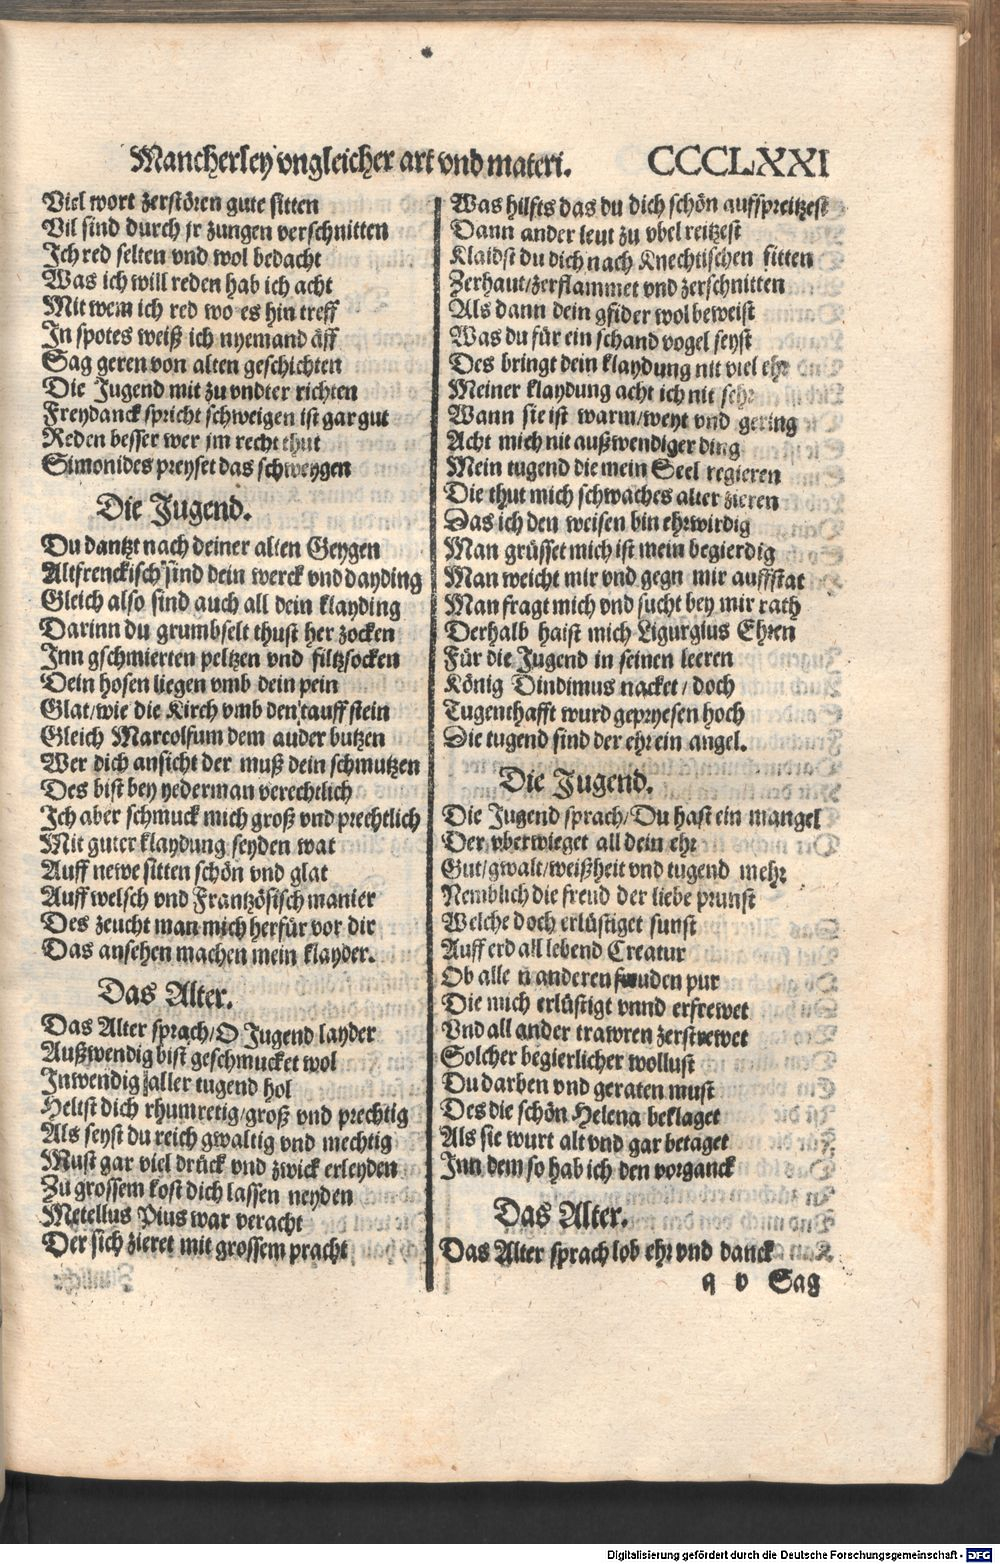 Mancherley vngleicher art vnd materi. CCCCLXXI
Viel wort zerstören gute sitten
Vil sind durch jr zungen verschnitten
Ich red selten vnd wol bedacht
Was ich will reden hab ich acht
Mit wem ich red wo es hin treff
In spotes weiß ich nyemand äff
Sag geren von alten geschichten
Die Jugend mit zu vndter richten
Freydanck spricht schweigen ist gar gut
Reden besser wer jm recht thut
Simonides preyset das schweygen
Die Jugend.
Du dantzt nach deiner alten Geygen
Altfrenckisch sind dein werck vnd dayding
Gleich also sind auch all dein klayding
Darinn du grumbselt thust her zocken
Inn gschmierten peltzen vnd filtzsocken
Dein hosen liegen vmb dein pein
Glat/wie die Kirch vmb den tauff stein
Gleich Marcolfum dem auder butzen
Wer dich ansicht der muß dein schmutzen
Des bist bey yederman verechtlich
Ich aber schmuck mich groß vnd prechtlich
Mit guter klaydung seyden wat
Auff newe sitten schön vnd glat
Auff welsch vnd Frantzösisch manier
Des zeucht man mich herfür vor dir
Das ansehen machen mein klayder.
Das Alter.
Das Alter sprach/O Jugend layder
Außwendig bist geschmucket wol
Inwendig aller tugend hol
Heltst dich rhumretig/groß vnd prechtig
Als seyst du reich gwaltig vnd mechtig
Must gar viel drück vnd zwick erleyden
Zu grossem kost dich lassen neyden
Metellus Pius war veracht
Der sich zieret mit grossem pracht
Was hilfts das du dich schön auffspreitzest
Dann ander leut zu vbel reitzest
Klaidst du dich nach Knechtischen sitten
Zerhaut/zerflammet vnd zerschnitten
Als dann dein gfider wol beweist
Was du für ein schand vogel seyst
Des bringt dein klaydung nit viel ehr
Meiner klaydung acht ich nit sehr
Wann sie ist warm/weyt vnd gering
Acht mich nit außwendiger ding
Mein tugend die mein Seel regieren
Die thut mich schwaches alter zieren
Das ich den weisen bin ehrwirdig
Man grüsset mich ist mein begierdig
Man weicht mir vnd gegn mir auffstat
Man fragt mich vnd sucht bey mir rath
Derhalb haist mich Ligurgius Ehren
Für die Jugend in seinen leeren
König Dindimus nacket/doch
Tugenthafft wurd gepryesen hoch
Die tugend sind der ehr ein angel.
Die Jugend.
Die Jugend sprach/Du hast ein mangel
Der vberwieget all dein ehr
Gut/gwalt/weißheit vnd tugend mehr
Nemblich die freud der liebe prunst
Welche doch erlüstiget sunst
Auff erd all lebend Creatur
Ob alle n anderen freuden pur
Die mich erlüstigt vnnd erfrewet
Vnd all ander trawren zerstrewet
Solcher begierlicher wollust
Du darben vnd geraten must
Des die schön Helena beklaget
Als sie wurt alt vnd gar betaget
Inn dem so hab ich den vorganck
Das Alter.
Das Alter sprach lob ehr vnd danck
q v Sag
Digitalisierung gefördert durch die Deutsche Forschungsgemeinschaft - DFG